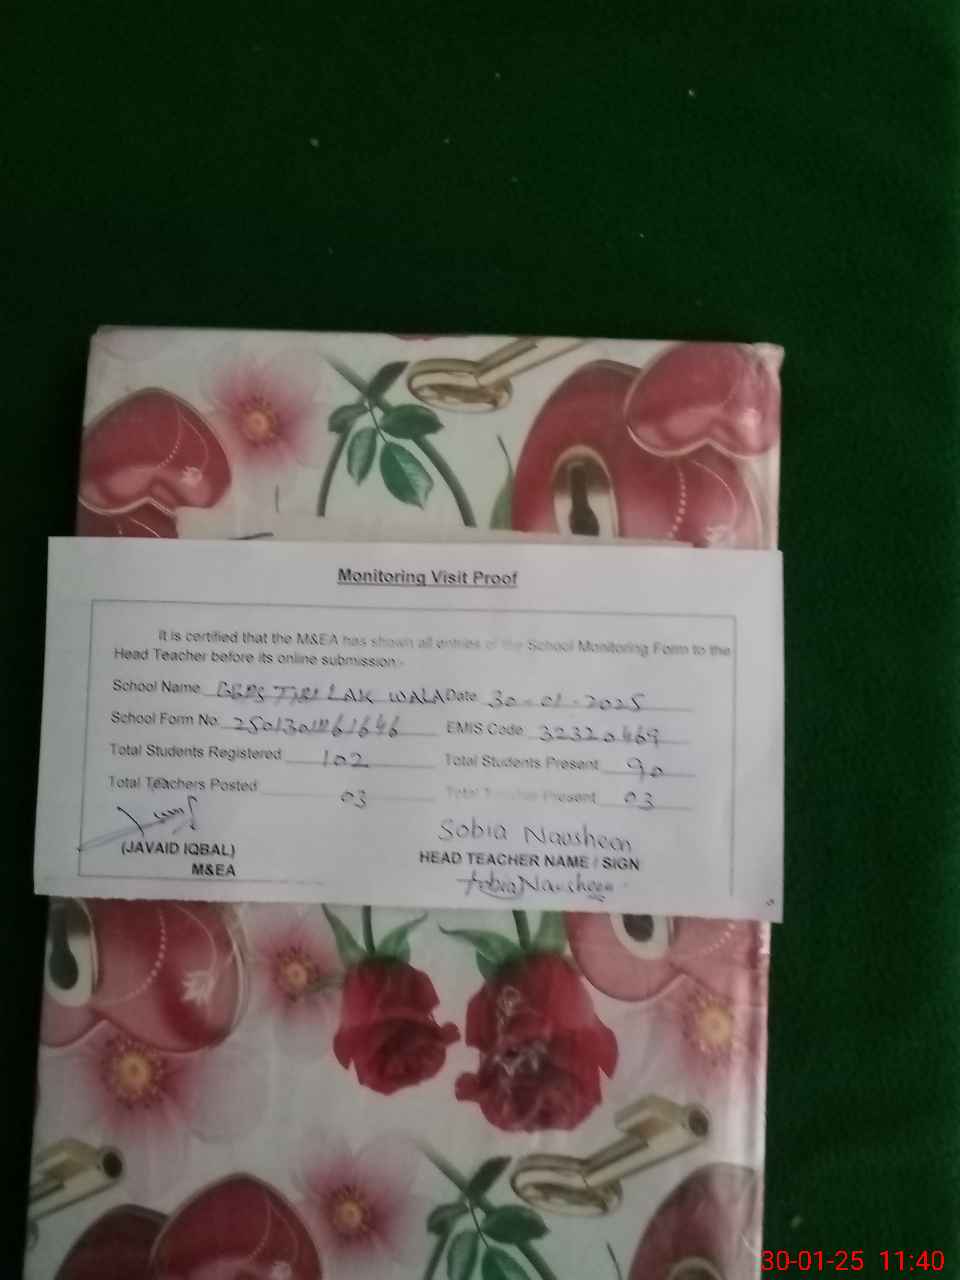 Monitoring Visit Proof
It is certified that the M&EA has shown all entries of the School Monitoring Form to the
Head Teacher before its online submission:-
School Name LAK WALA Date 30-01-2025
School Form No. EMIS Code 32320469
Total Students Registered 102 Total Students Present 90
Total Teachers Posted 03 Total Teacher Present 03
Sobia Nausheen
(JAVAID IQBAL) HEAD TEACHER NAME / SIGN
M&EA Sobia Nausheen
30-01-25 11:40